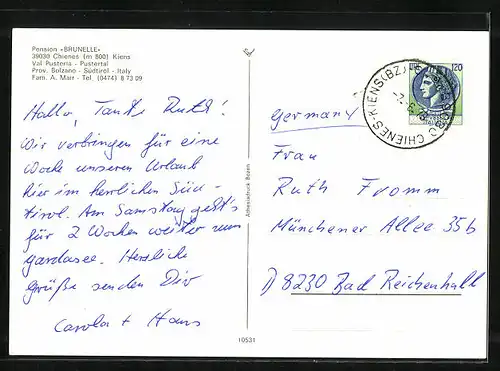 Pension «BRUNELLE»
39030 Chienes (m 800) Kiens
Val Pusteria - Pustertal
Prov. Bolzano - Südtirol - Italy
Fam. A. Mair - Tel. (0474) 8 73 09
Hallo, Tante Ruth!
Wir verbringen für eine
Woche unseren Urlaub
hier im herrlichen Süd-
tirol. Am Samstag geht's
für 2 Wochen weiter zum
Gardasee. Herzliche
Grüße senden Dir
Carola + Hans
10531
120
CHIENES-KIENS (BZ)
Germany
Frau
Ruth Fromm
Münchener Allee 35b
D 8230 Bad Reichenhall